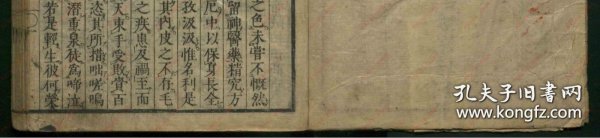 之色未甞不慨然
留神醫藥精究方
厄中以保身長全
孜汲汲惟名利是
其内皮之不存毛
之疾患及禍至而
天束手受敗賫百
恣其所措咄嗟嗚
潛重泉徒為啼泣
若是輕生彼何榮
孔夫子旧书网
www.kongfz.com